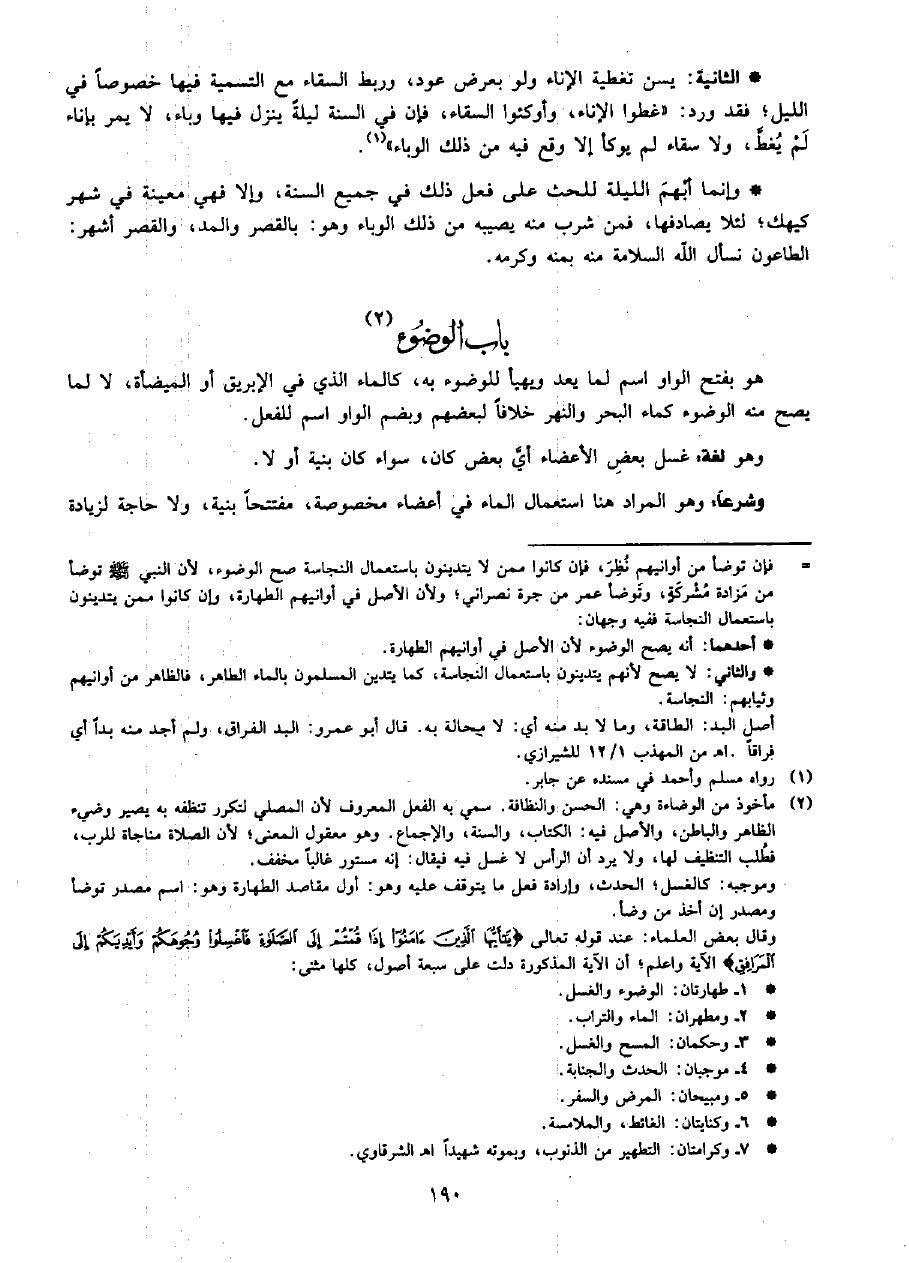 * الثانية: يسن تغطية الإناء ولو بعرض عود، وربط السقاء مع التسمية فيها خصوصاً في
الليل؛ فقد ورد: «غطوا الإناء، وأوكئوا السقاء، فإن في السنة ليلةً ينزل فيها وباء، لا يمر بإناء
لَمْ يُغطَّ، ولا سقاء لم يوكأ إلا وقع فيه من ذلك الوباء»(١).
* وإنما أبْهمَ الليلة للحث على فعل ذلك في جميع السنة، وإلا فهي معينة في شهر
كيهك؛ لئلا يصادفها، فمن شرب منه يصيبه من ذلك الوباء وهو: بالقصر والمد، والقصر أشهر:
الطاعون نسأل الله السلامة منه بمنه وكرمه.
باب الوضوء (٢)
هو بفتح الواو اسم لما يعد ويهيأ للوضوء به، كالماء الذي في الإبريق أو الميضأة، لا لما
يصح منه الوضوء كماء البحر والنهر خلافاً لبعضهم وبضم الواو اسم للفعل.
وهو لغة: غسل بعض الأعضاء أيَّ بعض كان، سواء كان بنية أو لا.
وشرعاً: وهو المراد هنا استعمال الماء في أعضاء مخصوصة، مفتتحاً بنية، ولا حاجة لزيادة
= فإن توضأ من أوانيهم نُظِرَ، فإن كانوا ممن لا يتدينون باستعمال النجاسة صح الوضوء، لأن النبي ﷺ توضأ
من مَزادة مُشْركَةٍ، وتَوضأ عمر من جرة نصراني؛ ولأن الأصل في أوانيهم الطهارة، وإن كانوا ممن يتدينون
باستعمال النجاسة ففيه وجهان:
* أحدهما: أنه يصح الوضوء لأن الأصل في أوانيهم الطهارة.
* والثاني: لا يصح لأنهم يتدينون باستعمال النجاسة، كما يتدين المسلمون بالماء الطاهر، فالظاهر من أوانيهم
وثيابهم: النجاسة.
أصل البد: الطاقة، وما لا بد منه أي: لا محالة به. قال أبو عمرو: البد الفراق، ولم أجد منه بداً أي
فراقاً .اهـ من المهذب ١٢/١ للشيرازي.
(١) رواه مسلم وأحمد في مسنده عن جابر.
(٢) مأخوذ من الوضاءة وهي: الحسن والنظافة. سمي به الفعل المعروف لأن المصلي لتكرر تنظفه به يصير وضيء
الظاهر والباطن، والأصل فيه: الكتاب، والسنة، والإجماع. وهو معقول المعنى؛ لأن الصلاة مناجاة للرب،
فطُلب التنظيف لها، ولا يرد أن الرأس لا غسل فيه فيقال: إنه مستور غالباً مخفف.
وموجبه: كالغسل؛ الحدث، وإرادة فعل ما يتوقف عليه وهو: أول مقاصد الطهارة وهو: اسم مصدر توضأ
ومصدر إن أخذ من وضأ.
وقال بعض العلماء: عند قوله تعالى ﴿يَتَأَيُّهَا الَّذِينَ ءَامَنُوٓا إِذَا قُمْتُمْ إِلَى الصَّلَوٰةِ فَاغْسِلُوا وُجُوهَكُمْ وَأَيْدِيَكُمْ إِلَى
الْمَرَافِقِ﴾ الآية واعلم؛ أن الآية المذكورة دلت على سبعة أصول، كلها مثنى:
* ١ـ طهارتان: الوضوء والغسل.
* ٢ـ ومطهران: الماء والتراب.
* ٣ـ وحكمان: المسح والغسل.
* ٤ـ موجبان: الحدث والجنابة.
* ٥ـ ومبيحان: المرض والسفر.
* ٦ـ وكنايتان: الغائط، والملامسة.
* ٧ـ وكرامتان: التطهير من الذنوب، وبموته شهيداً اهـ الشرقاوي.
١٩٠